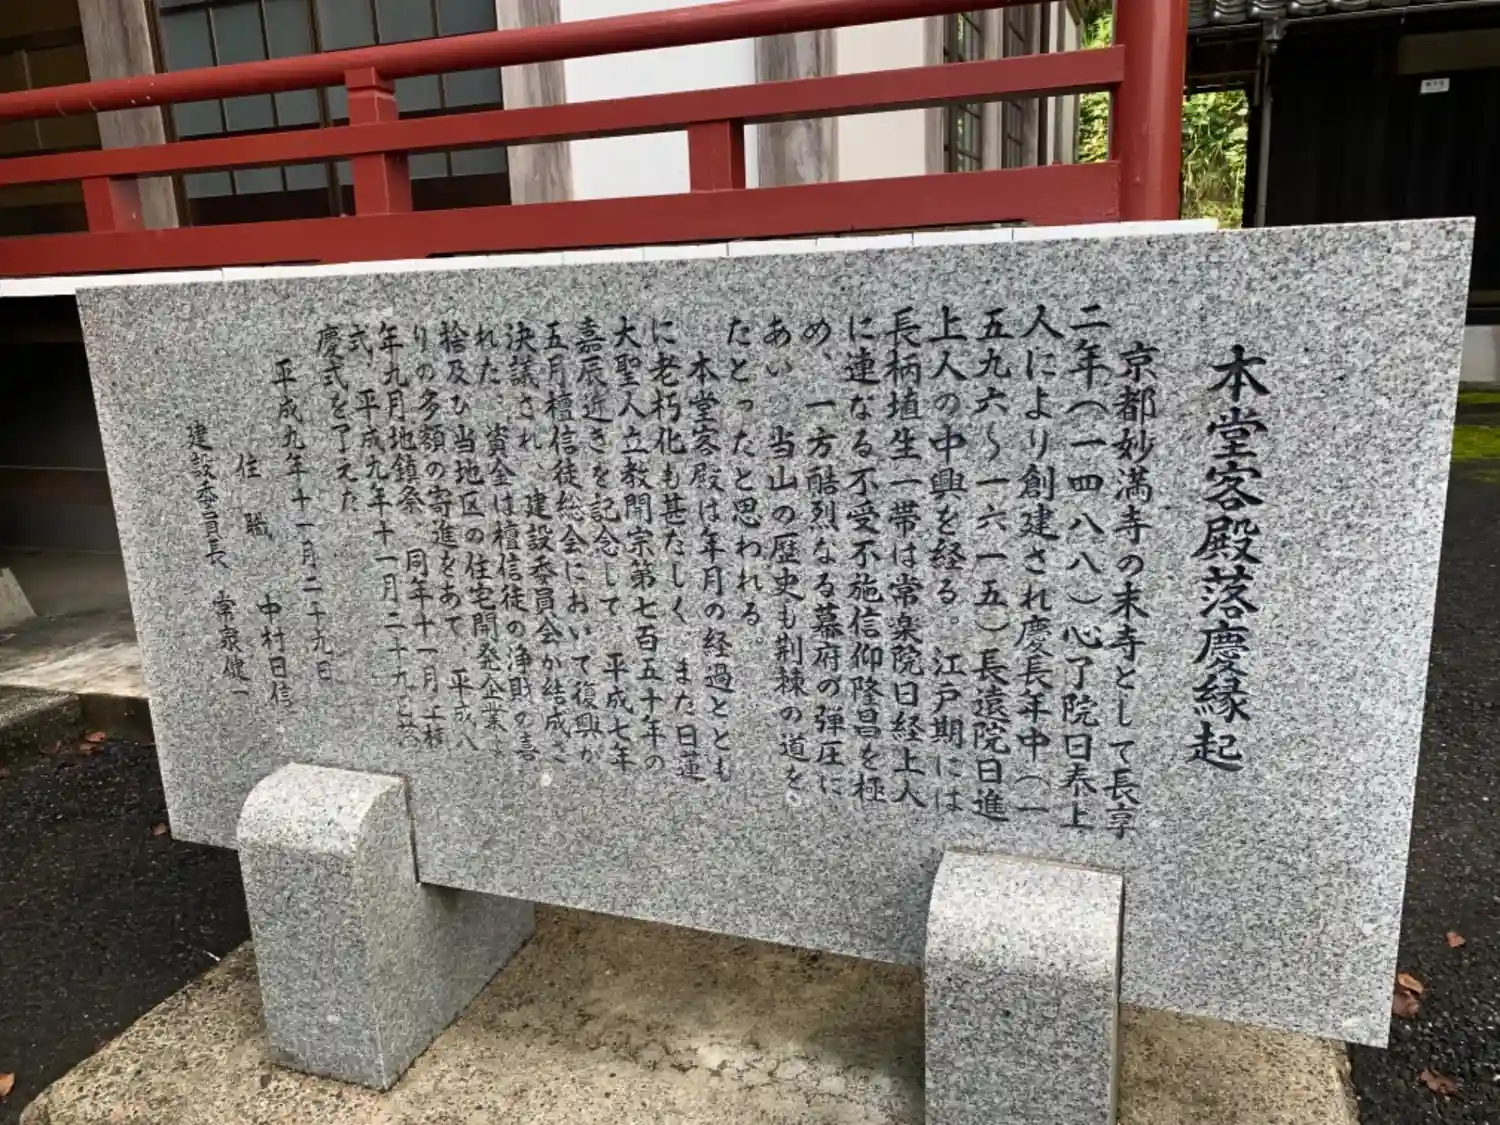 本堂客殿落慶縁起
京都妙満寺の末寺として長享
二年（一四八八）心了院日泰上
人により創建され慶長年中（一
五九六〜一六一五）長遠院日進
上人の中興を経る。江戸期には
長柄埴生一帯は常楽院日経上人
に連なる不受不施信仰隆昌を極
め、一方酷烈なる幕府の弾圧に
あい、当山の歴史も荆棘の道を
たとったと思われる。
本堂客殿は年月の経過ととも
に老朽化も甚たしく、また日蓮
大聖人立教開宗第七百五十年の
嘉辰近きを記念して、平成七年
五月檀信徒総会において復興が
決議され、建設委員会か結成さ
れた。資金は檀信徒の浄財の喜
捨及ひ当地区の住宅開発企業よ
りの多額の寄進をあて、平成八
年九月地鎮祭、同年十一月上棟
式、平成九年十一月二十九日落
慶式を了えた
平成九年十一月二十九日
住職 中村日信
建設委員長 常泉健一